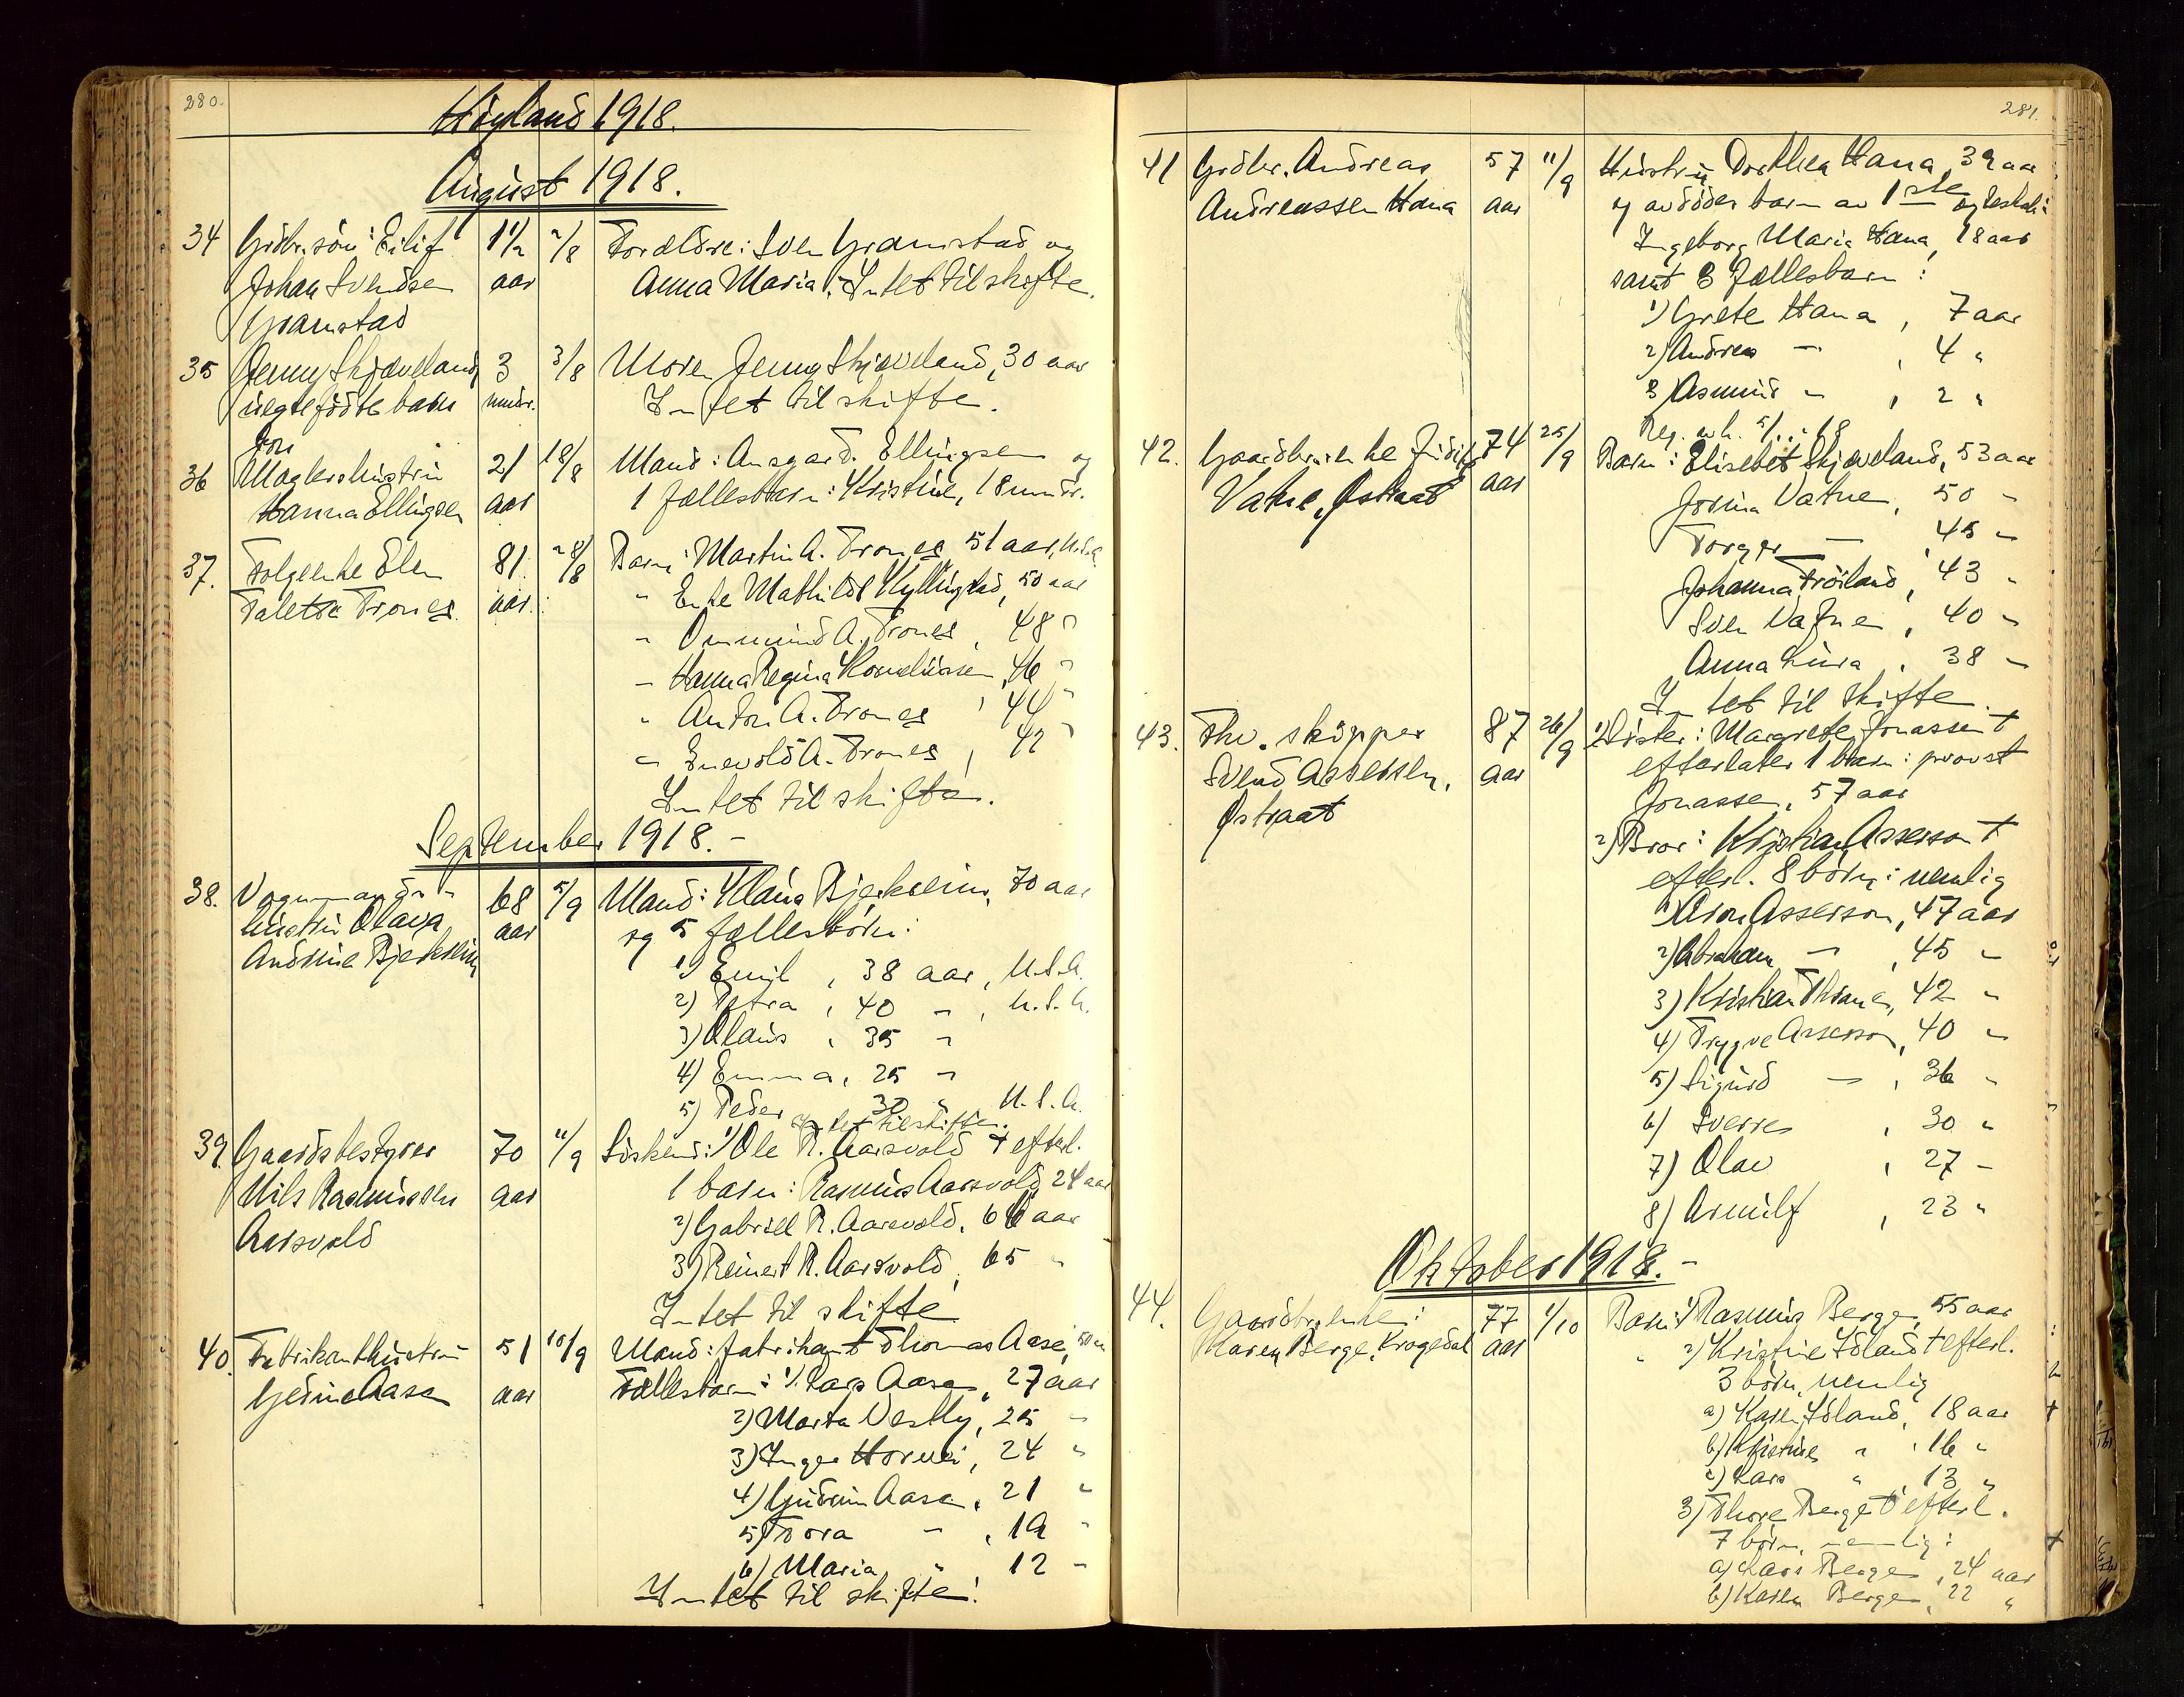 280.
Höyland 1918.
August 1918.
34 Grdbr. sön: Eilif 1 1/2 2/8 Forældre: Sven Gramstad og
Johan Svendsen aar Anna Maria. Intet til skifte.
Gramstad
35 Jenny Skjæveland, 3 3/8 Moren Jenny Skjæveland, 30 aar
uegtefödte barn mndr. Intet til skifte.
36 Maglershustru 21 18/8 Mand: Ansgard. Ellingsen og
Hanna Ellingsen aar 1 fællesbarn: Kristine, 18 mndr.
37. Folgeenke Elen 81 28/8 Barn: Martin A. Trones 51 aar, U.S.A
Taletta Trones. aar. " Enke Mathilde Kyllingstad, 50 aar
" Ommund A. Trones, 48 "
" Hanna Regina Korneliussen, 46 "
" Anton A. Trones, 44 "
" Enevold A. Trones, 42 "
Intet til skifte.
September 1918.-
38. 68 5/9 Mand: Klaus Bjerkreim, 70 aar
hustru Olava aar og 5 fællesbörn:
Andrine Bjerkreim
1) Emil, 38 aar, U.S.A.
2) Petra, 40 - , U.S.A.
3) Olaus, 35 -
4) Emma, 25 -
5) Peder 30 " U.S.A.
Intet til skifte.
39. Gaardsbestyrer 70 11/9 Söskend: 1) Ole R. Aarsvold † efterl.
Nils Rasmussen aar 1 barn: Rasmus Aarsvold, 24 aar
Aarsvold 2) Gabriell R. Aarsvold, 66 aar
3) Reinert R. Aarsvold, 65 "
Intet til skifte
40. Fabrikanthustru 51 10/9 Mand: fabrikant Thomas Aase, 50 aar
Gedine Aase aar Fællesbarn: 1. Lars Aase, 27 aar
2) Marta Vestly, 25 -
3) Inger Horvei, 24 "
4) Gudrun Aase, 21 "
5) Tora - , 19 "
6) Maria " 12 -
Intet til skifte!
281.
41 Grdbr. Andreas 57 11/9 Hustru Dorthea Hana, 39 aar
Andreassen Hana aar og avdödes barn av 1ste egteskab:
Ingeborg Maria Hana, 18 aar
samt 3 fællesbarn:
1) Grete Hana, 7 aar
2) Andreas - , 4 "
3 Asmund - , 2 "
42. Gaardbr.enke 74 25/9 Barn: Elisebet Skjæveland, 53 aar
Vatne, Østraat aar Jorina Vatne, 50 -
Torger - 45 -
Johanna Fröiland, 43 "
Sven Vatne, 40 -
Anna Lura, 38 -
Intet til skifte.
43. Fhv. skipper 87 26/9 1) Söster: Margrete Jonassen †
Svend Assersen, aar efterlater 1 barn: provst
Østraat Jonassen, 57 aar
2) Bror: Kristian Asserson †
efterl. 8 börn: nemlig
1) Aron Asserson, 47 aar
2) Abraham - , 45 -
3) Kristian Thrane, 42 -
4) Trygve Asserson, 40 -
5) Sigurd - , 36 "
6) Sverre , 30 "
7) Olav , 27 -
8) Arnulf , 23 "
Oktober 1918.-
44. Gaardbr.enke: 77 1/10 Barn: 1) Rasmus Berge, 55 aar
Karen Berge, Krogedal aar " 2) Kristine Töland † efterl.
3 börn, nemlig
a) Karen Töland, 18 aar
b) Kristine " , 16 "
c) Lars " , 13 "
3) Thore Berge † efterl.
7 börn, nemlig:
a) Lars Berge, 24 aar
b) Karen Berge, 22 "